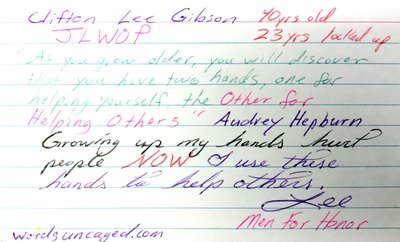 Clifton Lee Gibson 40yrs old
JLWOP 23 yrs locked up
"As you grow older, you will discover
that you have two hands, one for
helping yourself, the Other for
Helping Others" Audrey Hepburn
Growing up my hands hurt
people NOW I use these
hands to help others.
Lee
Men For Honor
wordsuncaged.com